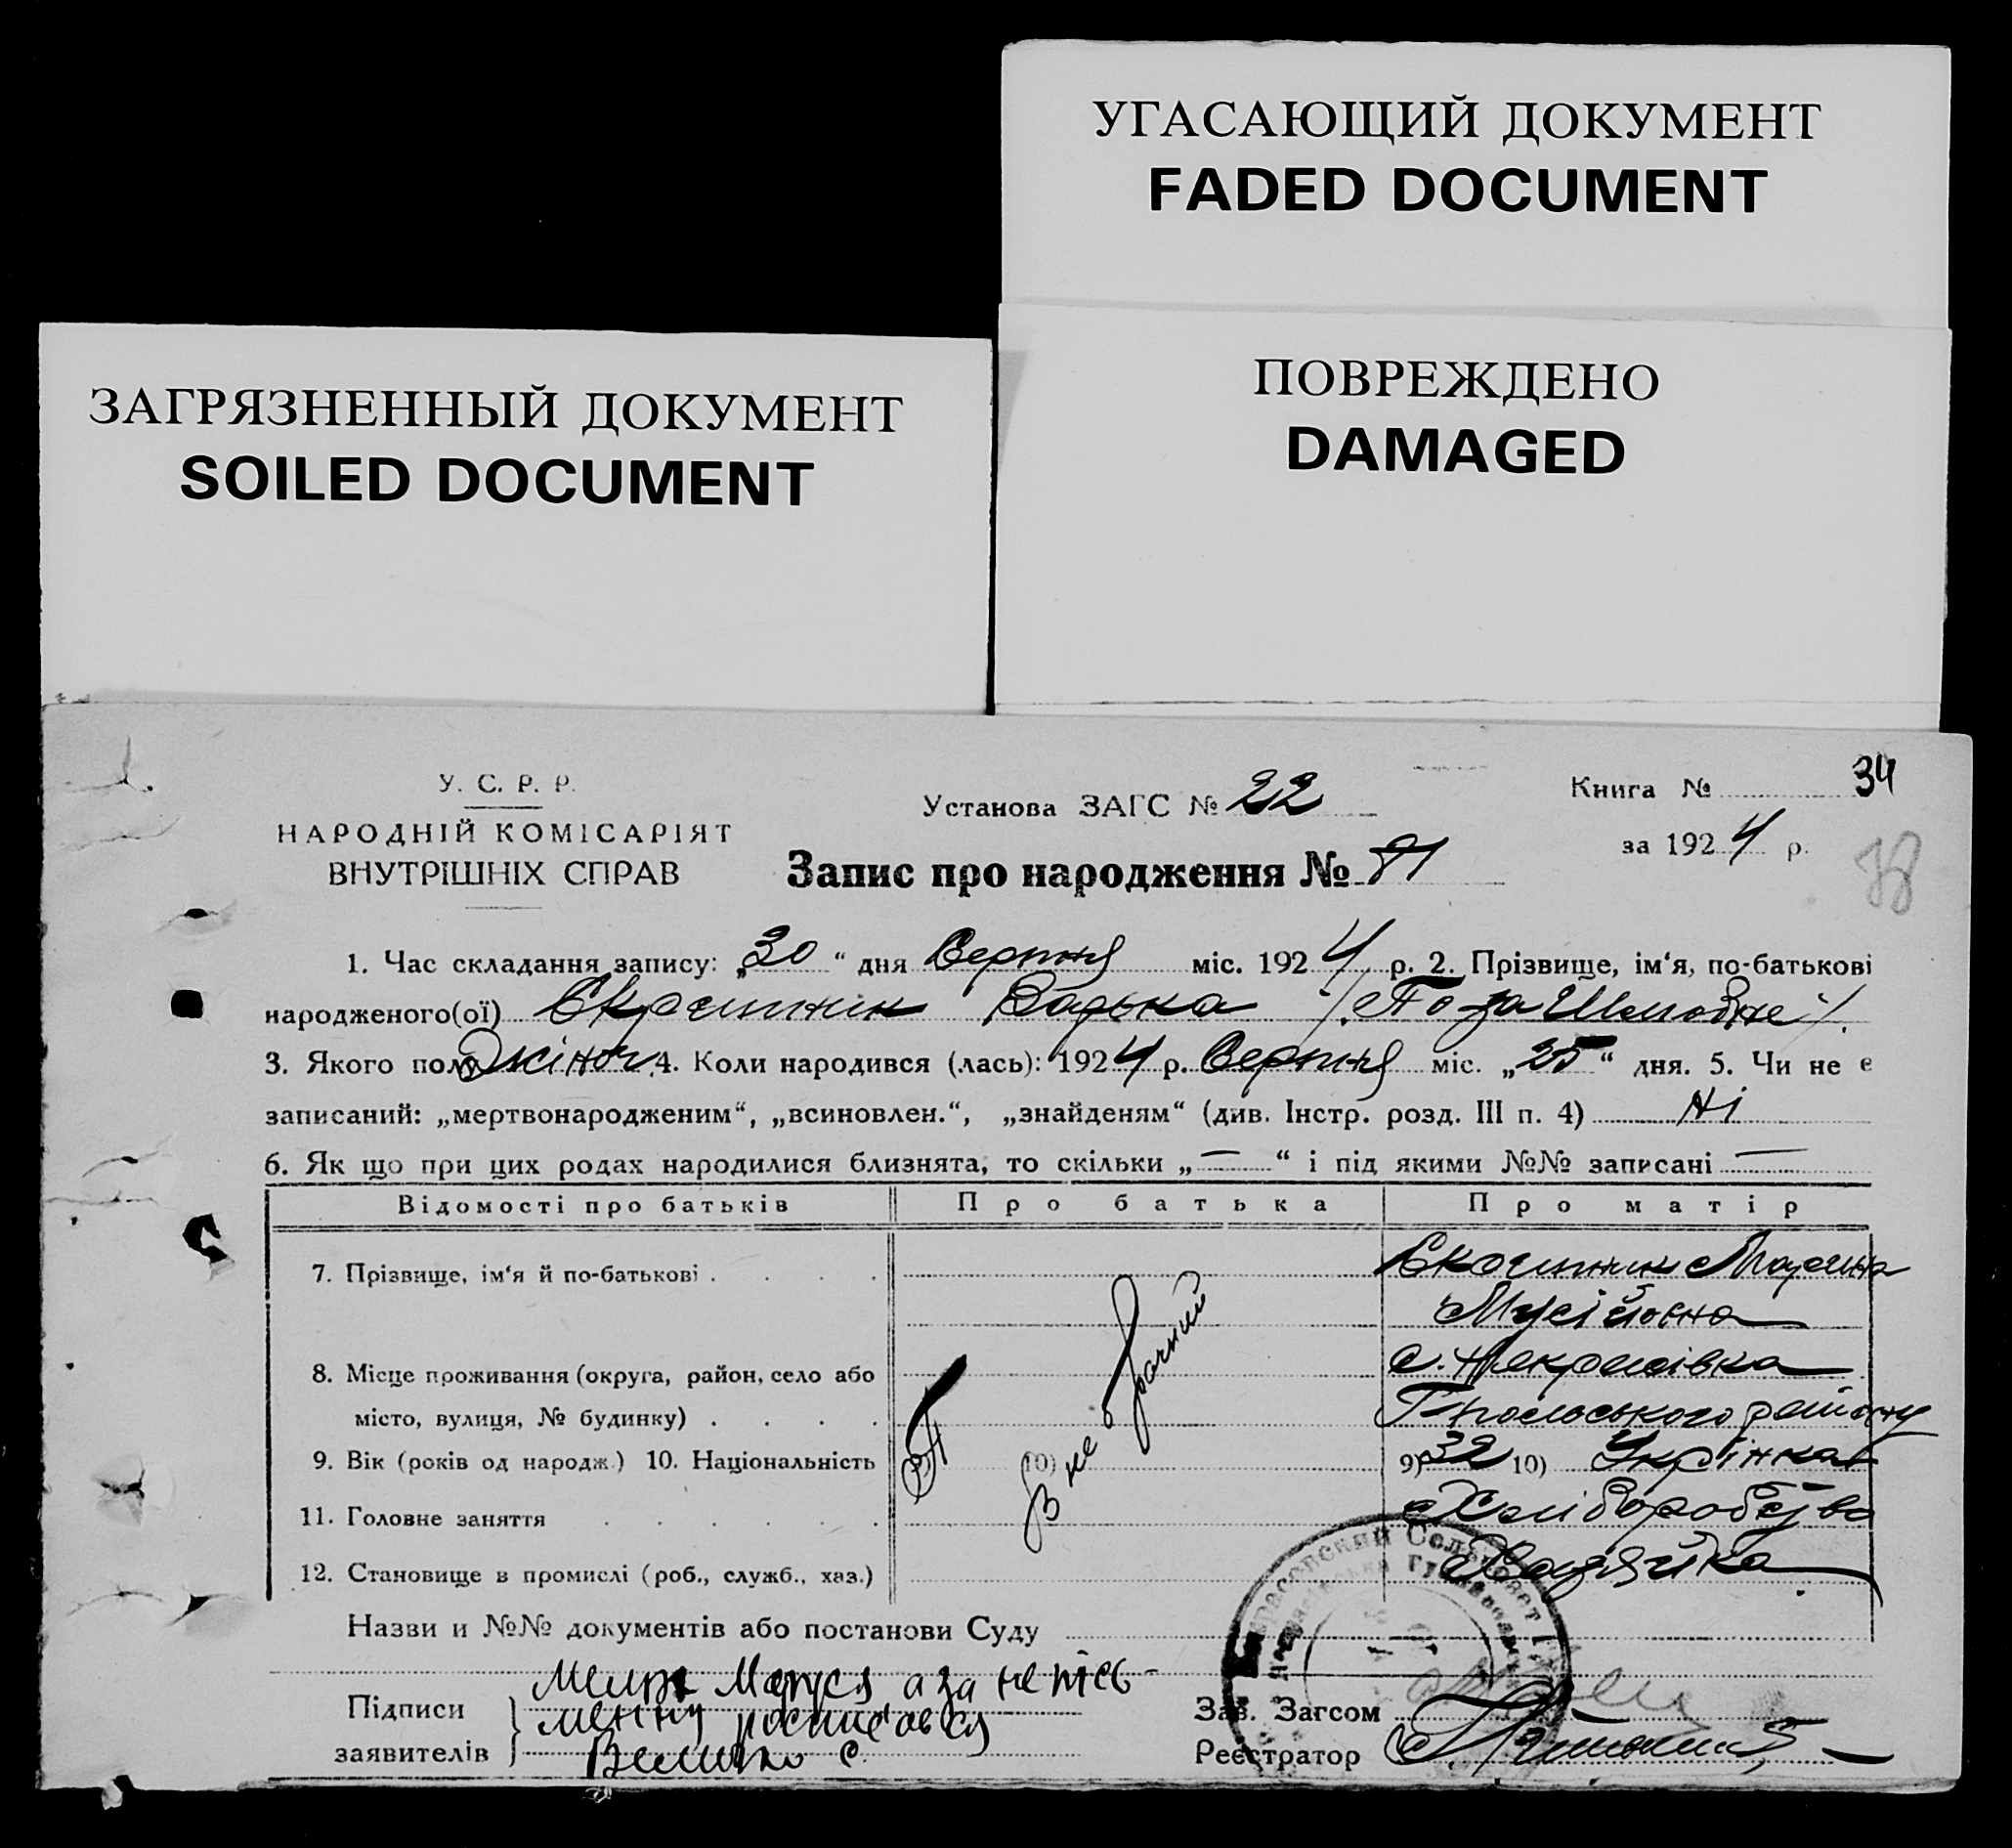 УГАСАЮЩИЙ ДОКУМЕНТ
FADED DOCUMENT
ЗАГРЯЗНЕННЫЙ ДОКУМЕНТ
SOILED DOCUMENT
ПОВРЕЖДЕНО
DAMAGED
У. С. Р. Р.
НАРОДНІЙ КОМІСАРІЯТ
ВНУТРІШНІХ СПРАВ
Установа ЗАГС № 22
Книга № 34
за 1924 р.
38
Запис про народження № 81
1. Час складання запису: „30“ дня Серпня міс. 1924 р. 2. Прізвище, ім‘я, по-батькові
народженого(ої)
3. Якого полу жіноч. 4. Коли народився (лась): 1924 р. Серпня міс. „25“ дня. 5. Чи не є
записаний: „мертвонародженим“, „всиновлен.“, „знайденям“ (див. Інстр. розд. III п. 4) Ні
6. Як що при цих родах народилися близнята, то скільки „—“ і під якими №№ записані —
Відомості про батьків Про батька Про матір
7. Прізвище, ім‘я й по-батькові . . . .
Мусіївна
8. Місце проживання (округа, район, село або с. Некрасівка
місто, вулиця, № будинку) . . . . району
9. Вік (років од народж.) 10. Національність 9) 10) В не брачний 9) 32 10) Укрінка
11. Головне заняття . . . . . . Хліборобство
12. Становище в промислі (роб., служб., хаз.) Хазяйка
Назви и №№ документів або постанови Суду
Підписи
заявителів
Маруся а за непись-
менну росписався
Зав. Загсом
Реєстратор